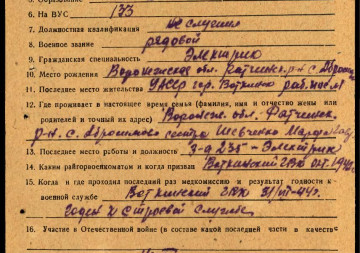 6. На ВУС 133
7. Должностная квалификация не служил
8. Военное звание рядовой
9. Гражданская специальность Электрик
10. Место рождения Воронежская обл. р-н с.
11. Последнее место жительства УАССР гор. Воткинск
12. Где проживает в настоящее время семья (фамилия, имя и отчество жены или
родителей и точный их адрес) Воронеж. обл.
р-н. с. сестра Шевченко
13. Последнее место работы и должность з-д 235 – Электрик
14. Каким райгорвоенкоматом и когда призван Воткинский ГВК окт.
15. Когда и где проходил последний раз медкомиссию и результат годности к
военной службе Воткинский ГВК
Годен к строевой службе
16. Участие в Отечественной войне (в составе какой последней части и в качеств